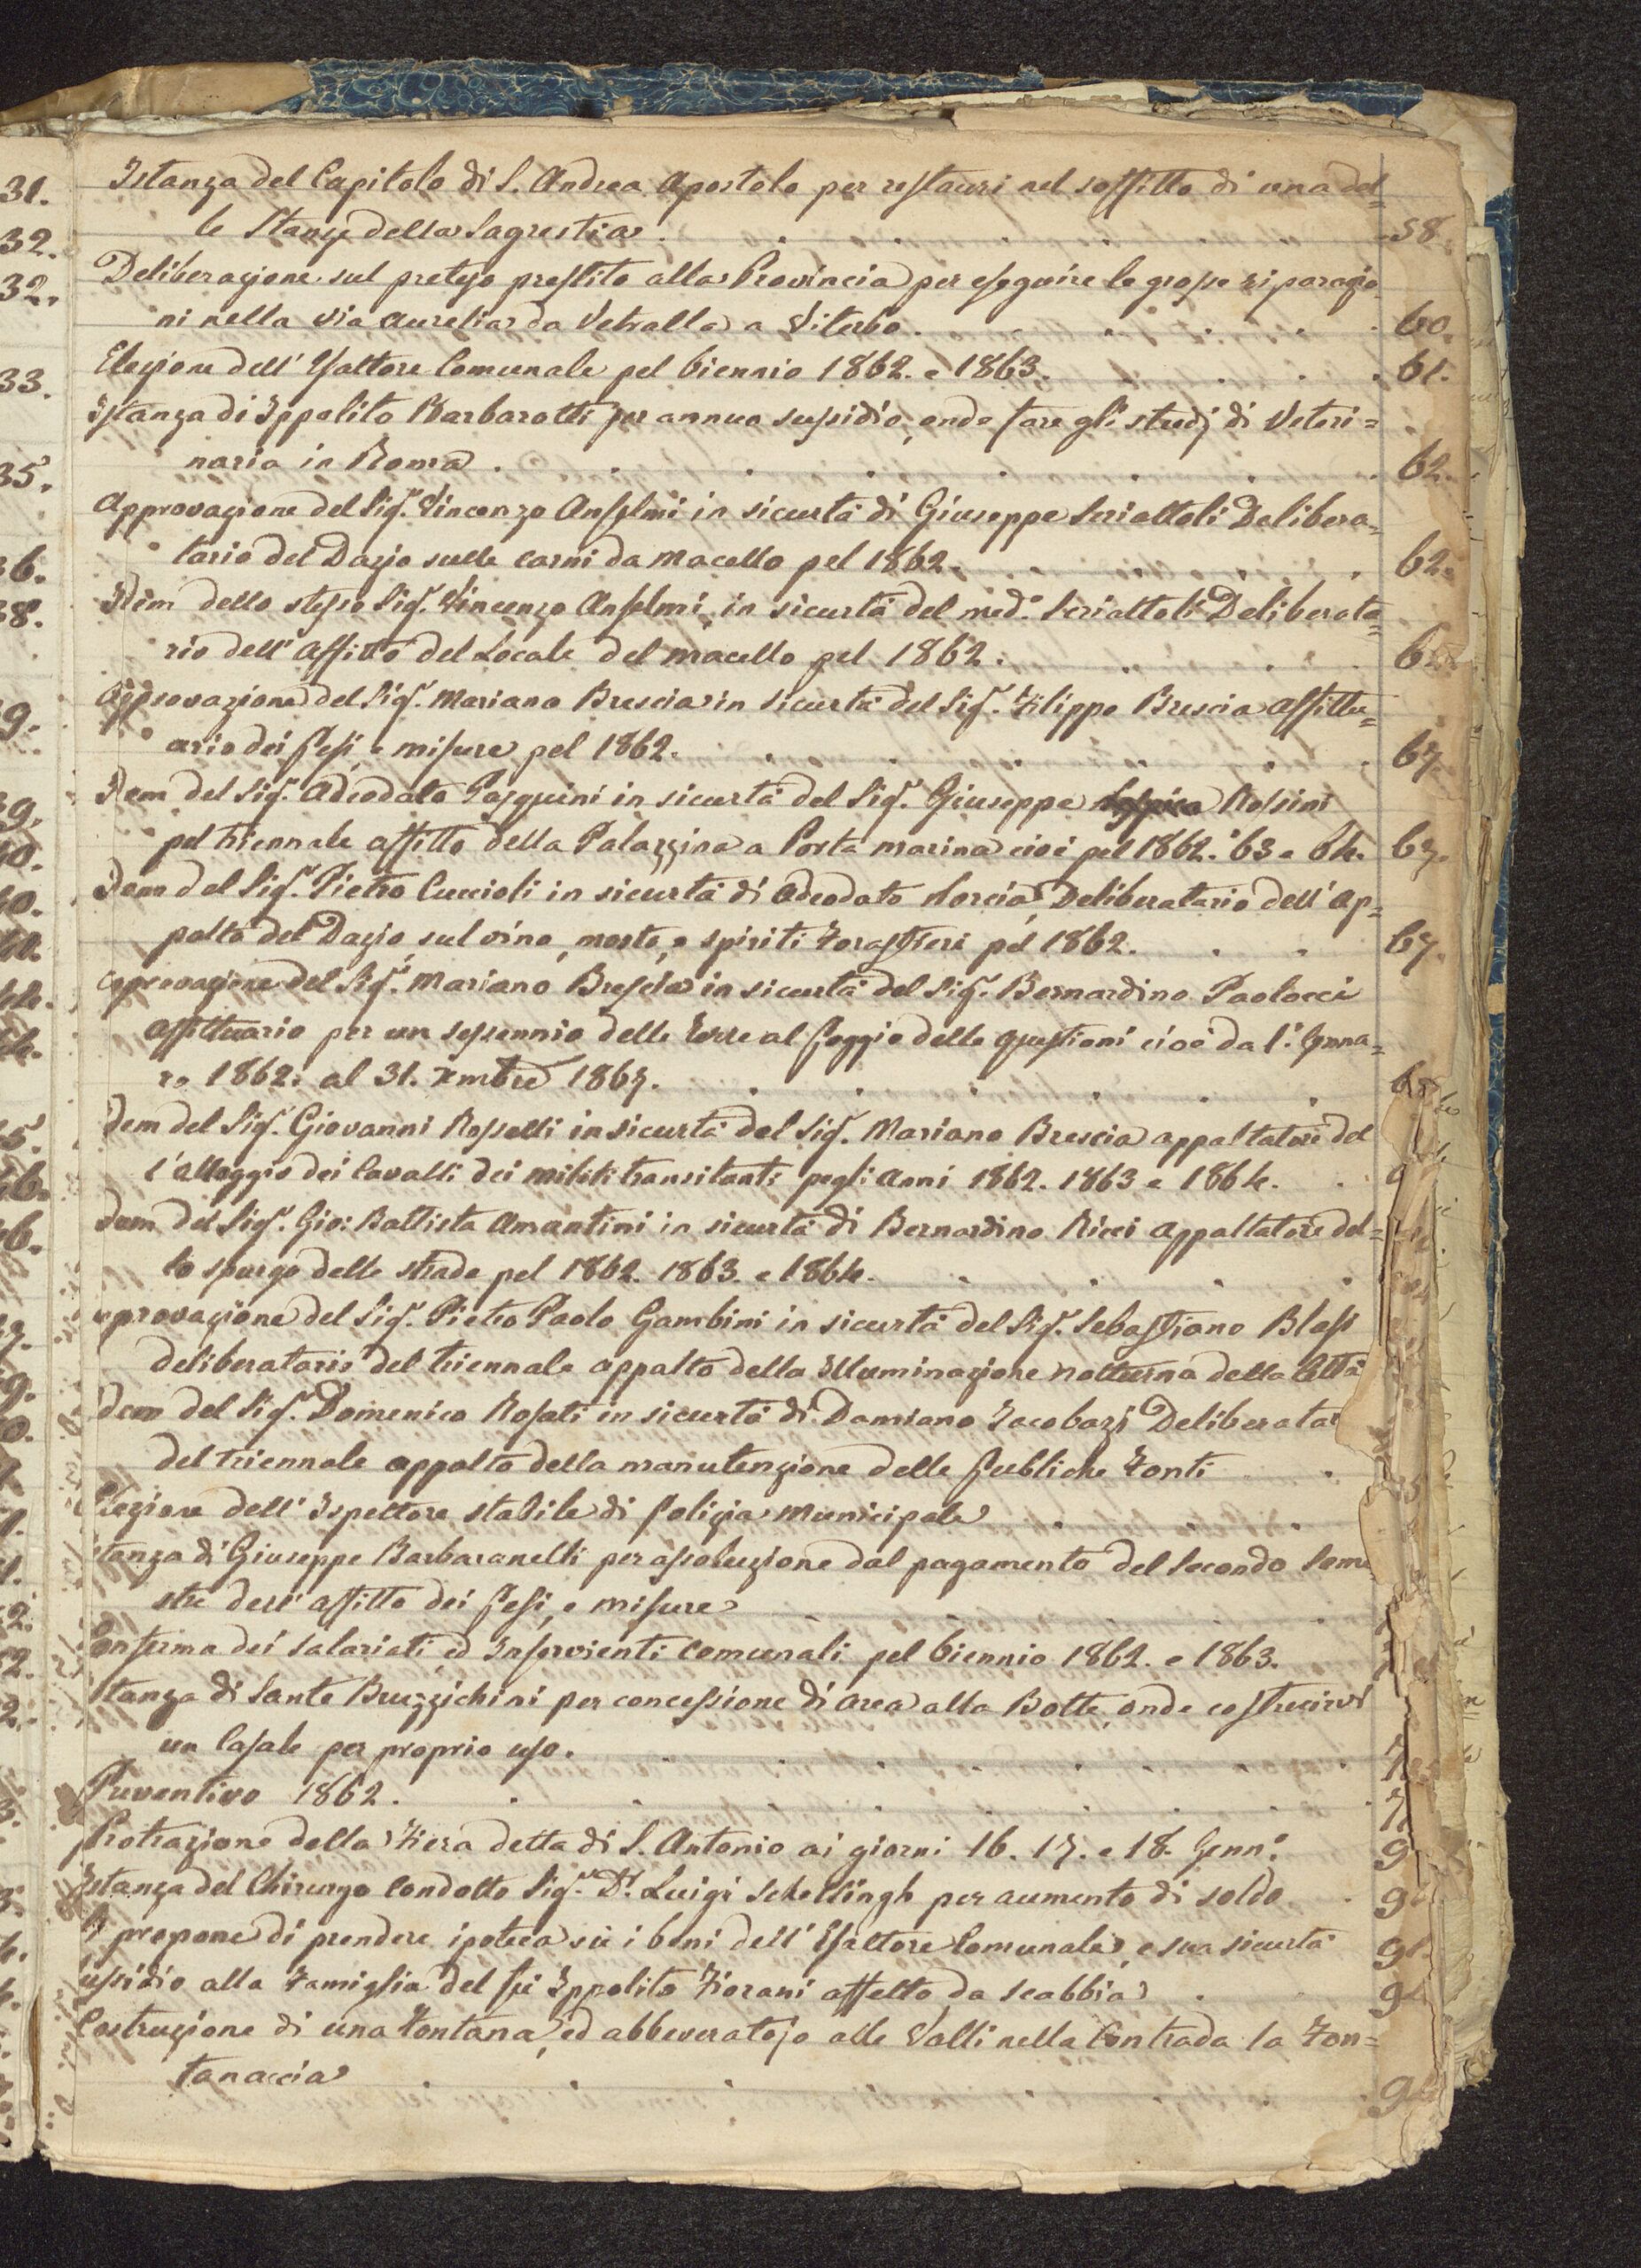 Istanza del Capitolo di S. Andrea Apostolo per restauri nel soffitto di una del=
le Stanze della Sagrestia . . . . . . 58.
Deliberazione sul preteso prestito alla Provincia per eseguire le grosse riparazio
ni nella via Aurelia da Vetralla a Viterbo . . . . . 60.
Elezione dell' Esattore Comunale pel biennio 1862. e 1863. . . . . 61.
Istanza di Ippolito Barbarotti per annuo sussidio, onde fare gli studj di Veteri=
naria in Roma . . . . . . . 62.
Approvazione del Sig.r Vincenzo Anselmi in sicurtà di Giuseppe Scriattoli Delibera=
tario del Dazio sulle carni da macello pel 1862. . . . . 62.
Idem dello stesso Sig.r Vincenzo Anselmi in sicurtà del med.o Scriattoli Deliberata=
rio dell' affitto del Locale del macello pel 1862. . . . . 6
Approvazione del Sig.r Mariano Brescia in sicurtà del Sig.r Filippo Brescia affittu=
ario dei Pesi, e misure pel 1862. . . . . . . 67.
Idem del Sig.r Adeodato Pasquini in sicurtà del Sig.r Giuseppe Rossini
pel triennale affitto della Palazzina a Porta marina cioè pel 1862. 63 e 64. 67.
Idem del Sig.r Pietro Cuccioli in sicurtà di Adeodato Norcia, Deliberatario dell' Ap=
palto del Dazio sul vino, mosto, e spiriti Forastieri pel 1862. . . 67.
approvazione del Sig.r Mariano Brescia in sicurtà del Sig.r Bernardino Paolocci
affittuario per un sessennio delle Terre al Poggio delle questioni cioè da 1.o Genna=
ro 1862. al 31. Xmbre 1867. . . . . . 68
dem del Sig.r Giovanni Rosselli in sicurtà del Sig.r Mariano Brescia appaltatore del
l'alloggio dei Cavalli dei militi transitanti pegli Anni 1862. 1863 e 1864. .
dem del Sig.r Gio: Battista Amantini in sicurtà di Bernardino Ricci Appaltatore del=
lo spurgo delle strade pel 1862. 1863. e 1864. . . . .
approvazione del Sig.r Pietro Paolo Gambini in sicurtà del Sig.r Sebastiano Blasi
deliberatario del triennale appalto della Illuminazione notturna della Città
dem del Sig.r Domenico Rosati in sicurtà di Damiano Jacobazi Deliberatar
del triennale appalto della manutenzione delle Pubbliche Fonti .
Elezione dell' Ispettore stabile di Polizia Municipale . . .
stanza di Giuseppe Barbaranelli per assoluzione dal pagamento del Secondo Seme
stre dell' affitto dei Pesi, e misure . . . . .
Conferma dei Salariati, ed Inservienti Comunali pel biennio 1862. e 1863. 7
Istanza di Sante Bruzzichini per concessione di area alla Botte, onde costruirvi
un Casale per proprio uso. . . . . . . 7
Preventivo 1862. . . . . . . . . 7
Protrazione della Fiera detta di S. Antonio ai giorni 16. 17. e 18. Genn.o 9
Istanza del Chirurgo Condotto Sig.r D.r Luigi Schellingh per aumento di soldo . 9
Si propone di prendere ipoteca su i beni dell' Esattore Comunale, e sua sicurtà 9
ussidio alla Famiglia del fu Ippolito Fiorani affetto da scabbia . 9
Costruzione di una Fontana, ed abbeveratojo alle Valli nella Contrada la Fon=
tanaccia . . . . . . . 9